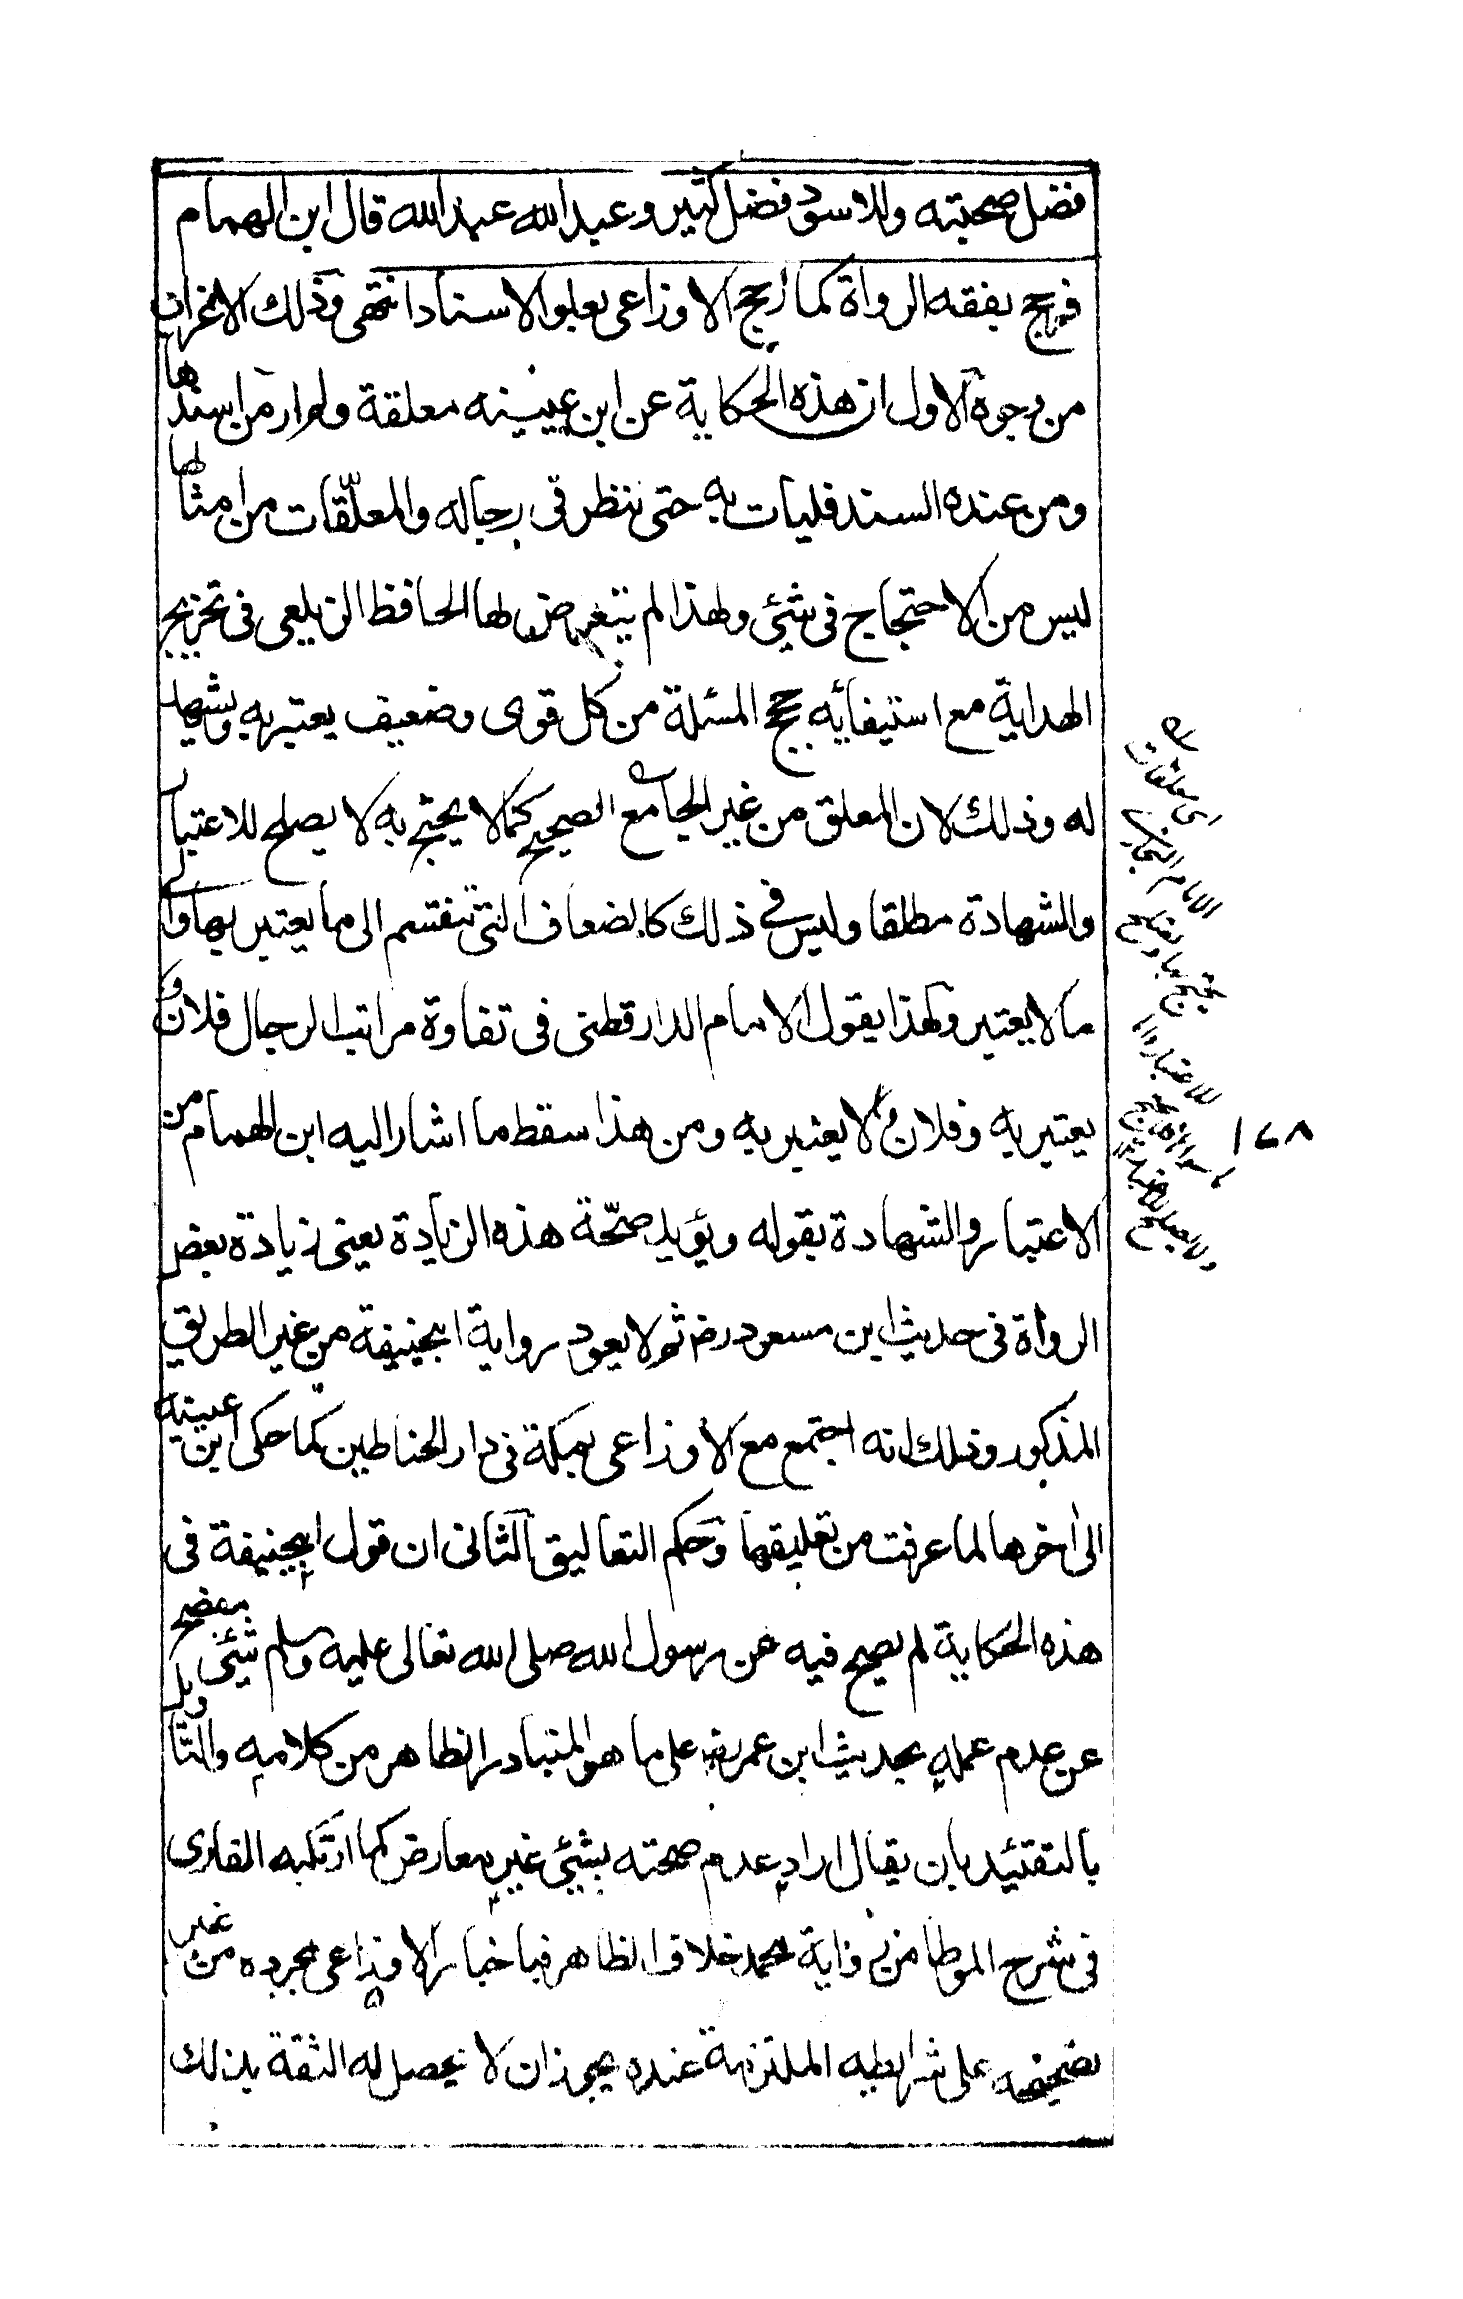 فضل صحبته وللاسود فضل كثير وعبد الله عبد الله قال ابن الهمام
فرجح بفقه الرواة كما رجح الاوزاعى بعلو الاسناد انتهى وذلك الاغراب
من وجوه الاول ان هذه الحكاية عن ابن عيينه معلقة ولم ار من اسندها
ومن عنده السند فليات به حتى ننظر فى رجاله والمعلّقات من امثالها
ليس من الاحتجاج فى شئى ولهذا لم يتعرض لها الحافظ الزيلعى فى تخريج
الهداية مع استيفائه حجج المسئلة من كل قوى وضعيف يعتبر به ويشهد
له وذلك لان المعلق من غير الجامع الصحيح كما لا يحتج به لا يصلح للاعتبار
والشهادة مطلقا وليس فى ذلك كالضعاف التى تنقسم الى ما يعتبر بها والى
ما لا يعتبر ولهذا يقول الامام الدارقطنى فى تفاوة مراتب الرجال فلان
يعتبر به وفلان لا يعتبر به ومن هذا سقط ما اشار اليه ابن الهمام من
الاعتبار والشهادة بقوله ويؤيد صحّة هذه الزيادة يعنى زيادة بعض
الرواة فى حديث ابن مسعود رضـ ثم لا يعود رواية ابيحنيفة من غير الطريق
المذكور وذلك انه اجتمع مع الاوزاعى بمكة فى دار الحناطين كما حكى ابن عيينة
الى اخرها لما عرفت من تعليقها وحكم التعاليق الثانى ان قول ابيحنيفة فى
هذه الحكاية لم يصح فيه عن رسول الله صلى الله تعالى عليه وسلم شئى مفصح
عن عدم عمله بحديث ابن عمر رضـ على ما هو المتبادر الظاهر من كلامه والتاويل
بالتقئيد بان يقال اراد عدم صحته بشئى غير معارض كما ارتكبه القارى
فى شرح الموطا من رواية محمد خلاف الظاهر فباخبار الاوزاعى بمجرده من غير
تصحيحه على شرائطه الملتزمة عنده يجوز ان لا يحصل له الثقة بذلك
اى معلقات
الامام البخارى
يحتج بها ويصلح
١٤٨